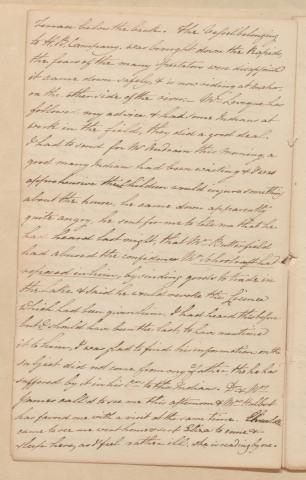 below the bank. The Vessel belonging
to H. B. Company, was brought down the Rapids,
the fears of the many Spectators were disappointed
it came down safely, & is now riding at anchor
on the other side of the river. Mr
followed my advice & had some Indians at
work in the field, they did a good deal.
I had to send for Mr this morning a
good many Indians had been waiting & I was
apprehensive the children would injure something
about the house, he came down apparently
quite angry, he sent for me to tell me that he
had heard last night, that Mr Butterfield
had abused the confidence Mr Schoolcraft had
reposed in him, by sending goods to trade in
the Lake & said he would revoke the License
which had been given him, I had heard this before
but I should have been the last to have mentioned
it to him, I was glad to find his information, on the
subject did not come from my Father, tho he has
suffered by it in his to the Indians. Dr & Mrs
James call'd to see me this afternoon & Mrs
has favored me with a visit at the same time.
came to see me went home & sent Eliza to come &
sleep here, as I feel rather ill, she is reading by me.